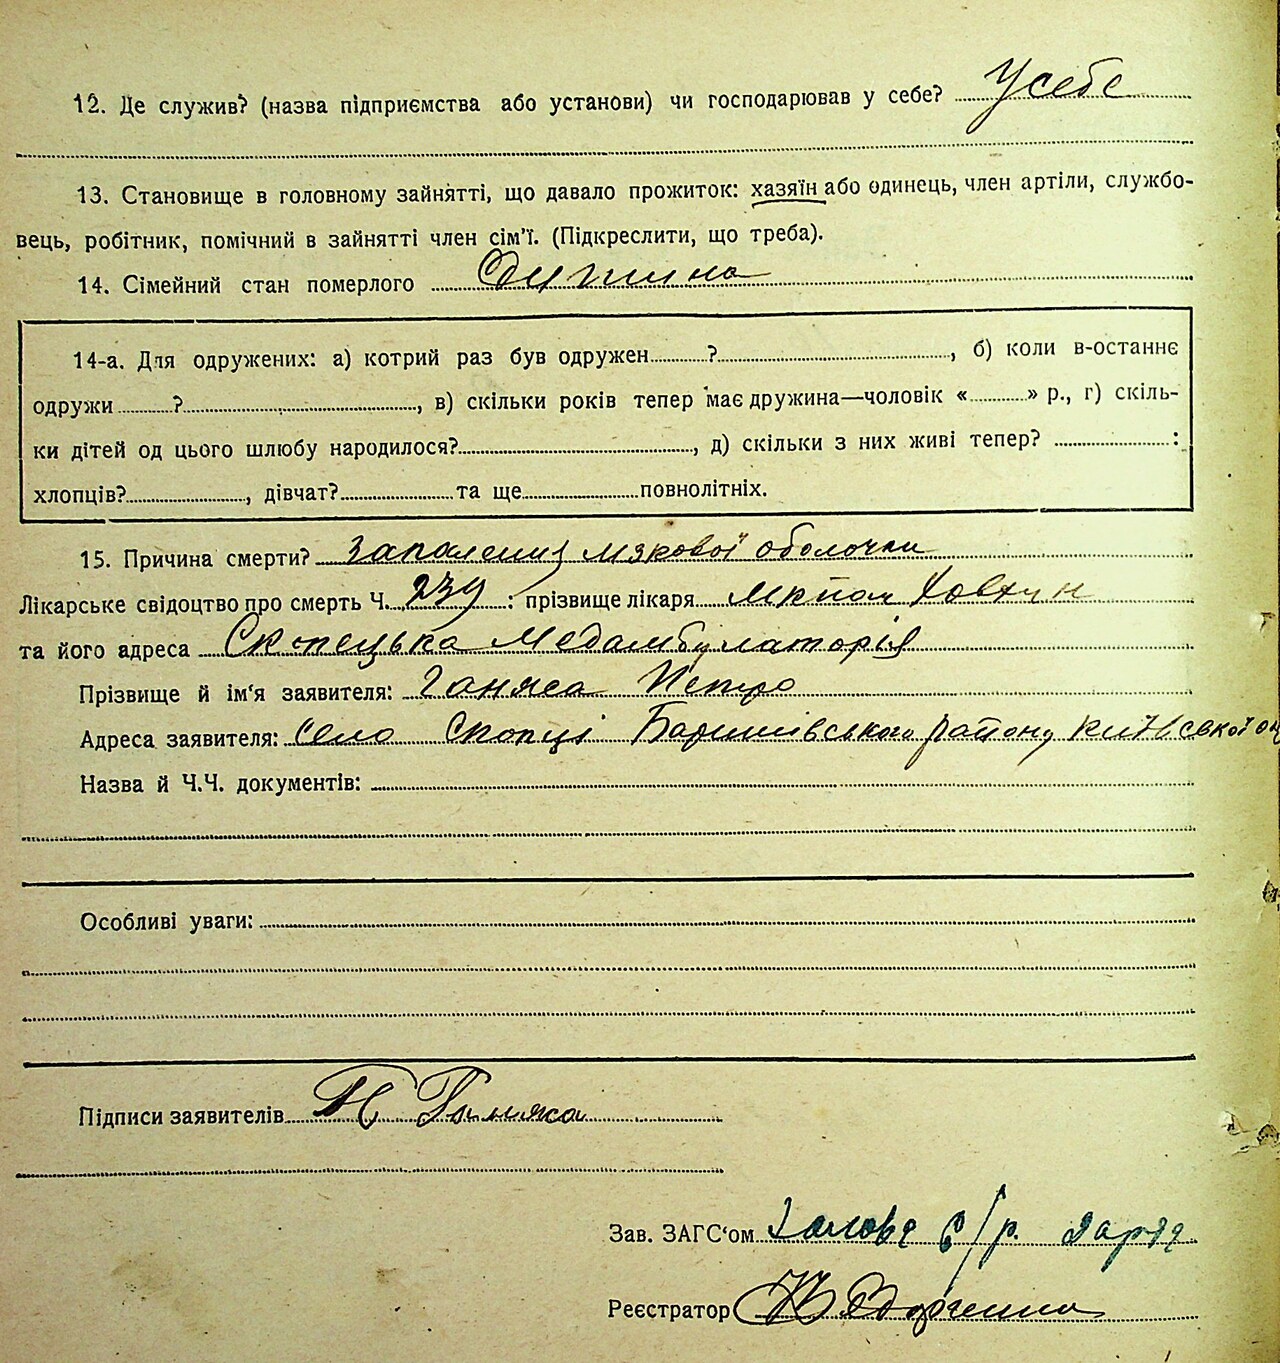 12. Де служив? (назва підприємства або установи) чи господарював у себе? У себе
13. Становище в головному зайнятті, що давало прожиток: хазяїн або одинець, член артіли, службо-
вець, робітник, помічний в зайнятті член сім'ї. (Підкреслити, що треба).
14. Сімейний стан померлого Дитина
14-а. Для одружених: а) котрий раз був одружен........?........, б) коли в-останнє
одружи........?........, в) скільки років тепер має дружина—чоловік «........» р., г) скіль-
ки дітей од цього шлюбу народилося?........, д) скільки з них живі тепер? ........:
хлопців?........, дівчат?........та ще........повнолітніх.
15. Причина смерти? Запаления мякової оболочки
Лікарське свідоцтво про смерть Ч. 239 : прізвище лікаря Ховхун
та його адреса Скопецька Медамбулаторія
Прізвище й ім'я заявителя: Ганжа Петро
Адреса заявителя: село Скопці Баришівського району Київської
Назва й Ч.Ч. документів:
Особливі уваги:
Підписи заявителів П Ганжа
Зав. ЗАГС'ом Голова с/р.
Реєстратор